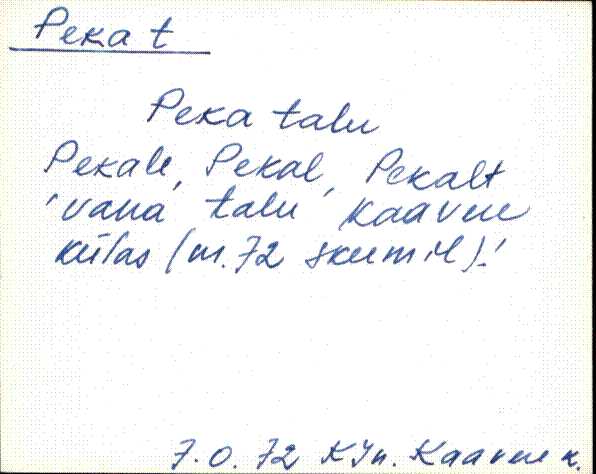 Peka t
Peka talu
Pekale, Pekal, Pekalt
'vana talu Kaavere
külas (m. 72 skeemil).'
7.0.72 KJn. Kaavere k.